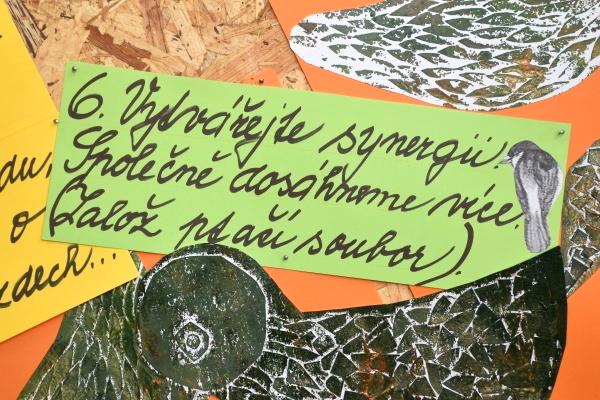 6. Vytvářejte synergii.
Společně dosáhneme více.
(Založ ptačí soubor).
du,
o
zdech...